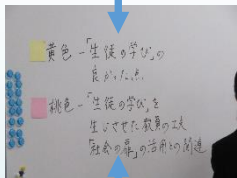 黄色-「生徒の学び」の
良かった点
桃色-「生徒の学び」を
生じさせた教員の工夫
「社会の扉」の活用との関連